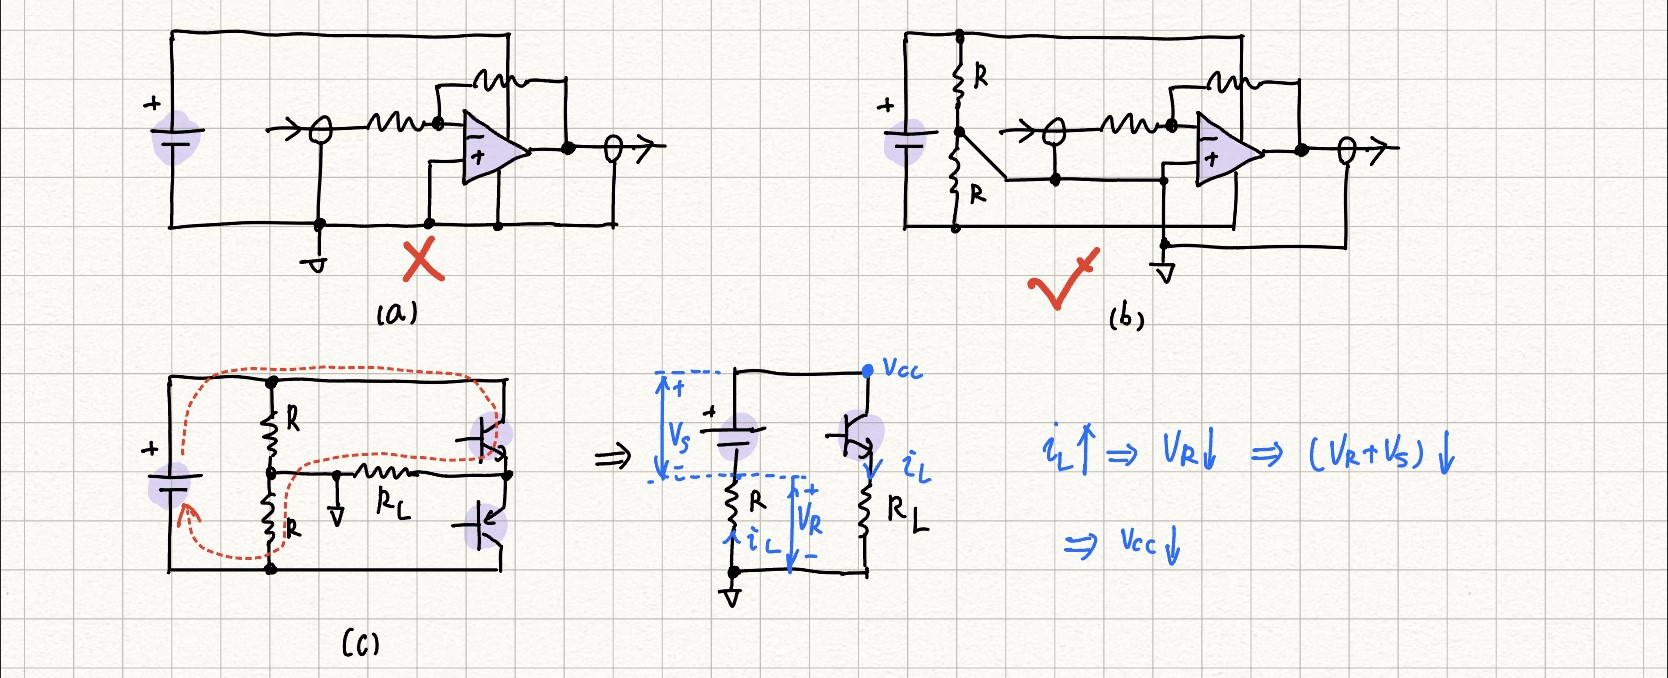 +
-
+
(a)
+
R
R
-
+
(b)
+
R
R
RL
(c)
+
Vcc
+
Vs
-
R
iL
+
VR
-
iL
RL
iL↑ ⇒ VR↓ ⇒ (VR+Vs)↓
⇒ Vcc↓